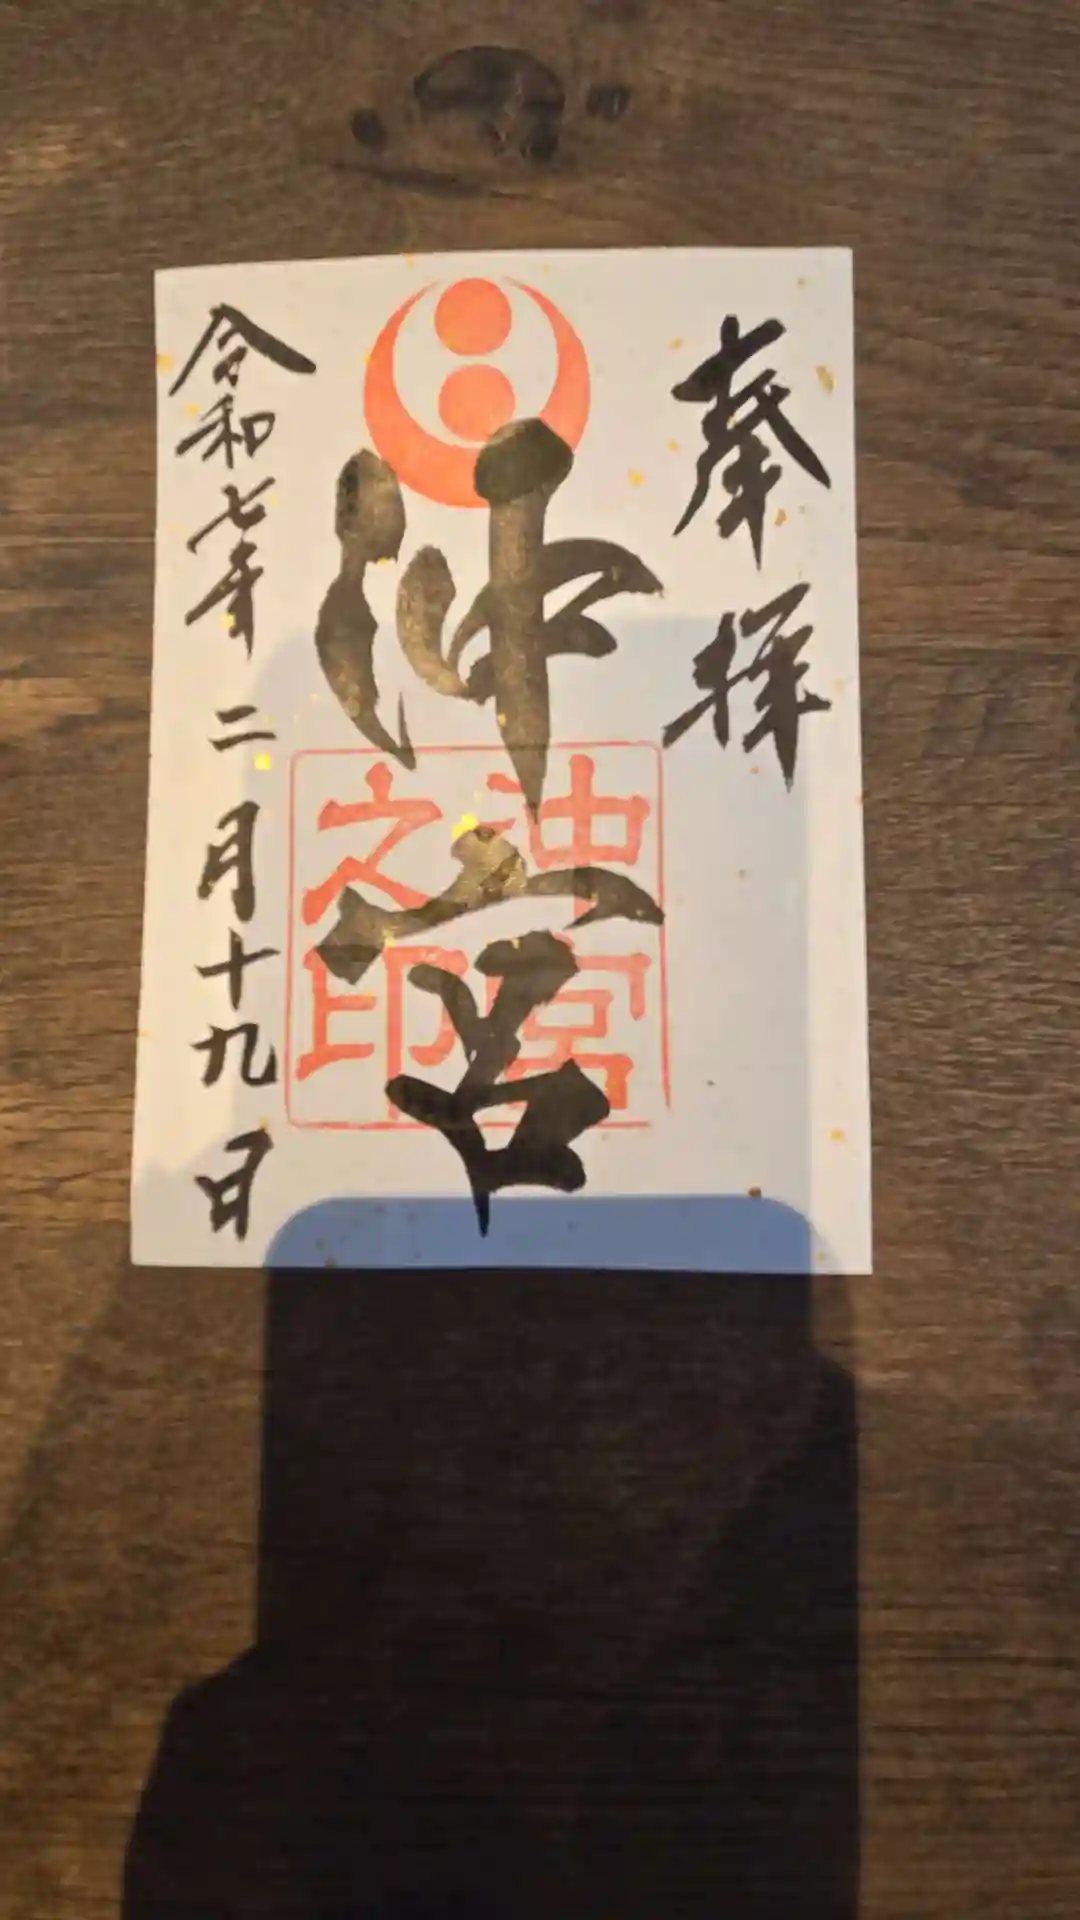 奉拝
沖宮
沖宮
之印
令和七年二月十九日